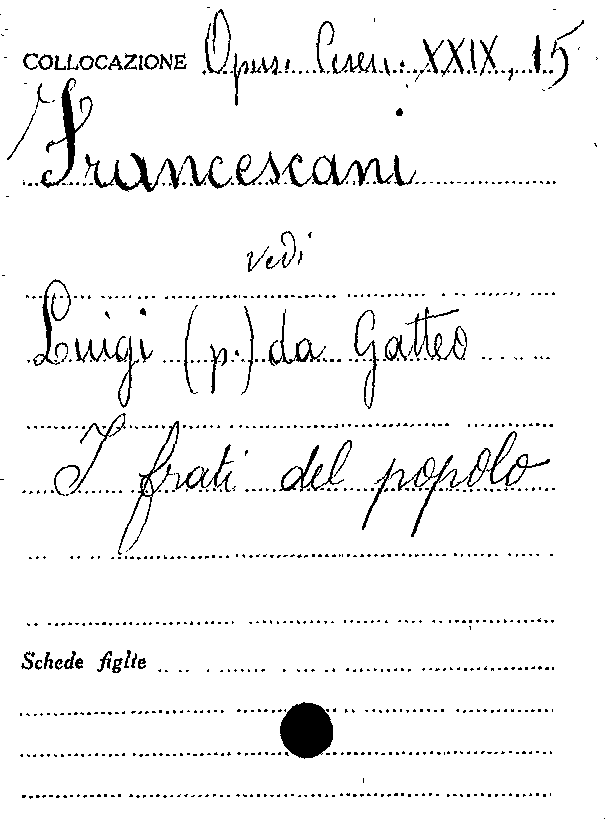 COLLOCAZIONE Opus. Cesen. XXIX, 15
Francescani
vedi
Luigi (p.) da Gatteo
I frati del popolo
Schede figlie